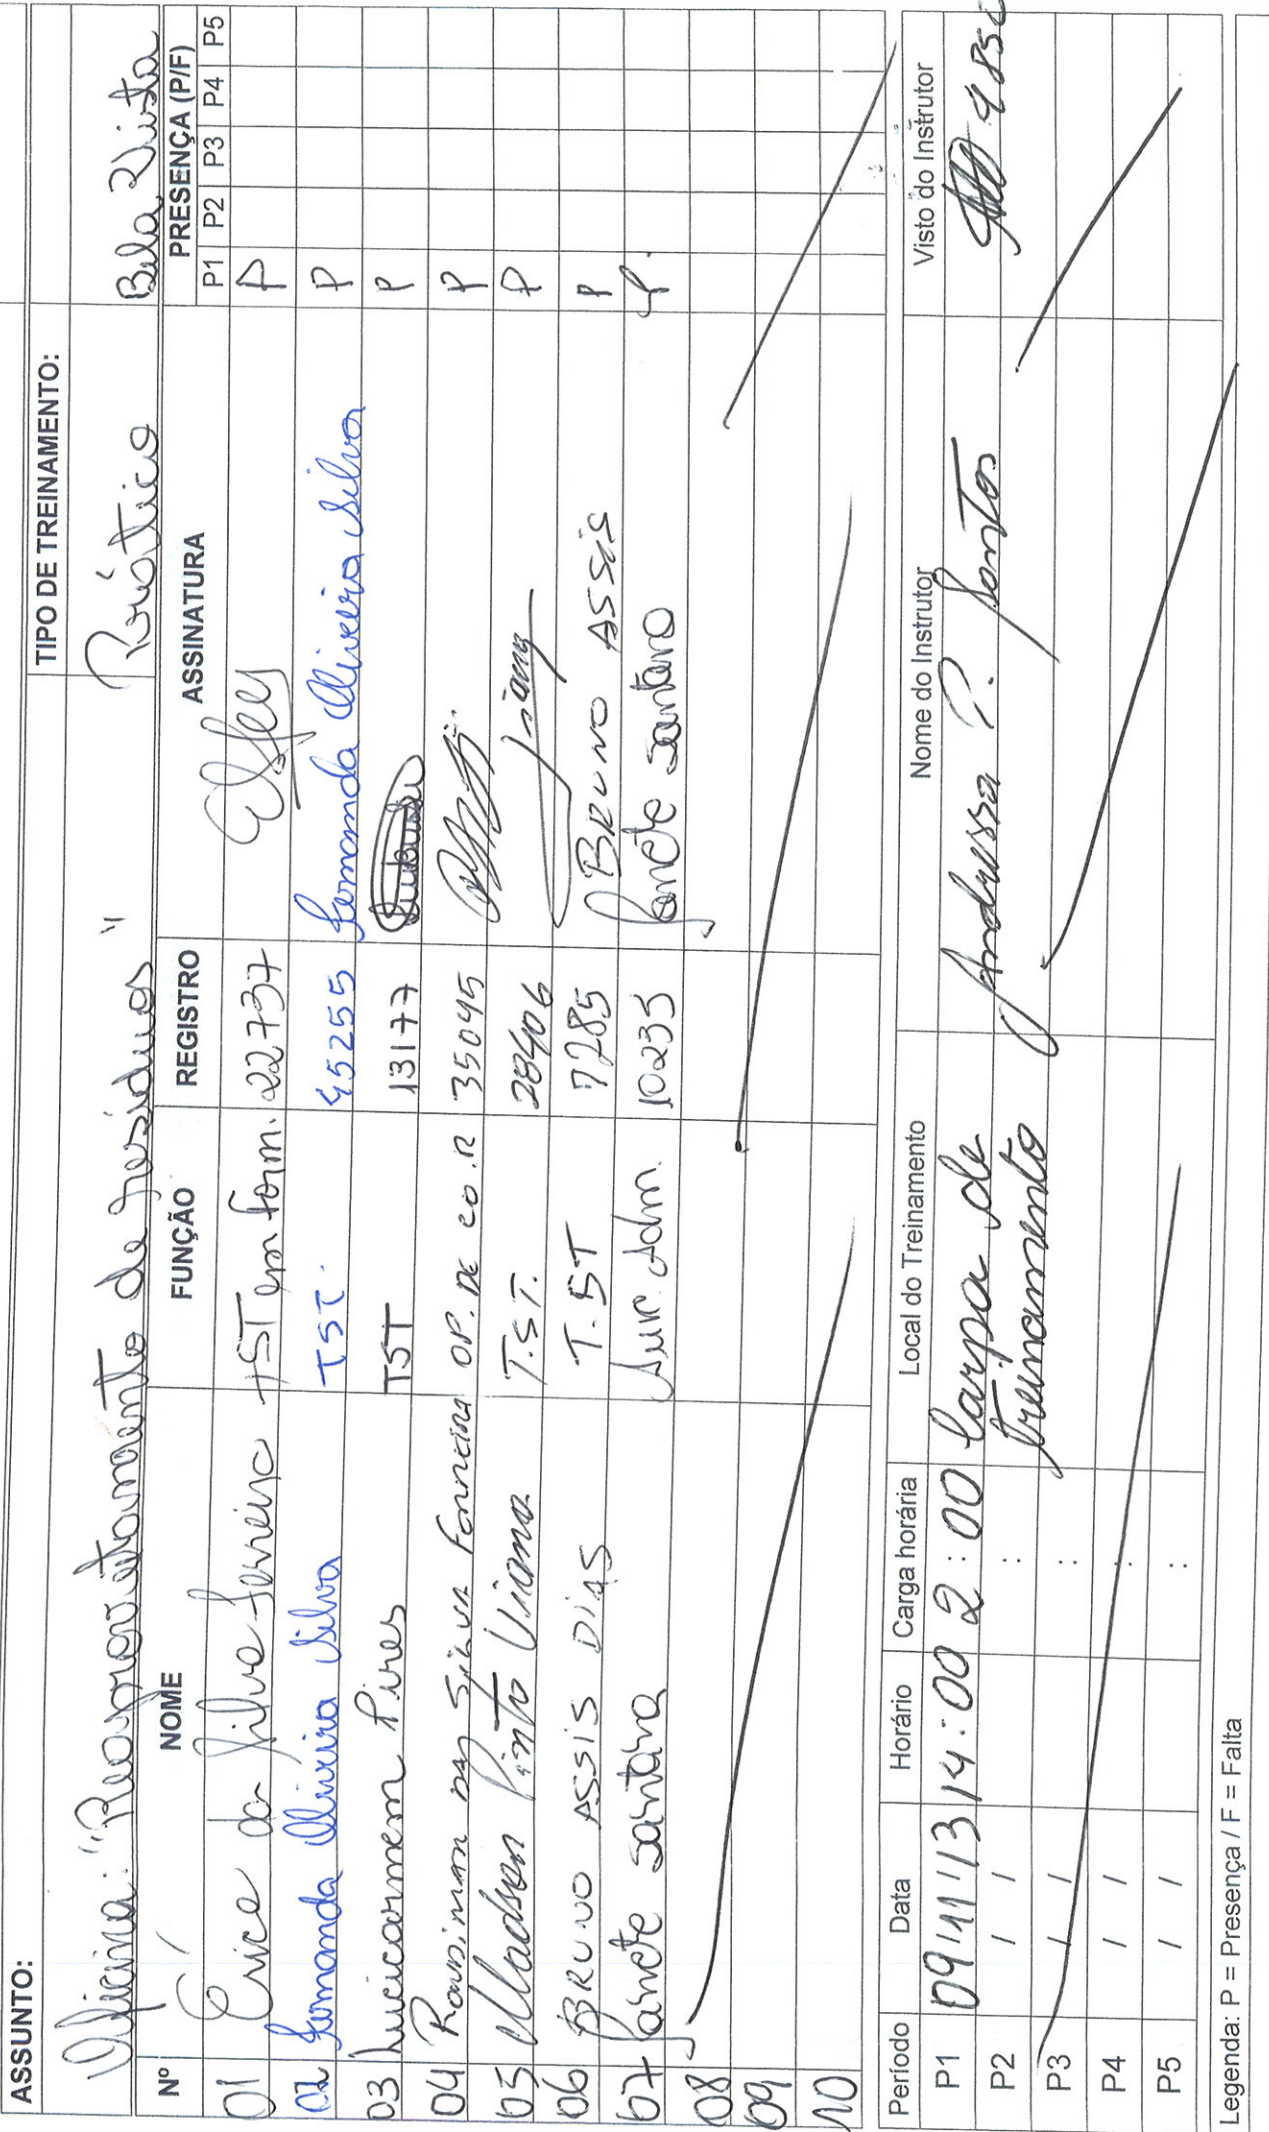 ASSUNTO:
TIPO DE TREINAMENTO:
Oficina: "Reaproveitamento de resíduos"
Prático
Bela Vista
Nº NOME FUNÇÃO REGISTRO ASSINATURA PRESENÇA (P/F)
P1 P2 P3 P4 P5
01 Érica da Silva Ferreira TST em form. 22737 P
02 Fernanda Oliveira Silva TST. 45255 Fernanda Oliveira Silva P
03 Lucicarmem Pires TST 13177 P
04 Rossimar das Silva Ferreira OP. DE CO.R 35045 P
05 Madson Pinto Viana T.S.T. 28406 P
06 BRUNO ASSIS DIAS T.ST 7285 BRUNO ASSIS P
07 Janete Santana Aux. Adm. 10235 Janete Santana P.
08
09
10
Período Data Horário Carga horária Local do Treinamento Nome do Instrutor Visto do Instrutor
P1 09/11/13 14:00 2:00 Carpa de Andressa P. Santos
P2 / / : treinamento
P3 / / :
P4 / / :
P5 / / :
Legenda: P = Presença / F = Falta